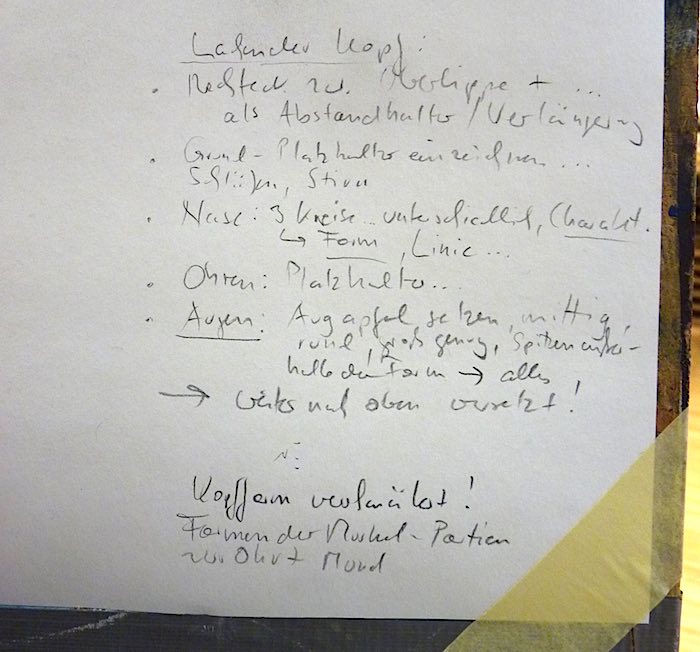 Lachender Kopf:
• Rechteck zw. Oberlippe + ...
als Abstandhalter / Verlängerung
• Grund-Platzhalter einzeichnen ...
Schläfen, Stirn
• Nase: 3 Kreise... unterschiedlich, Charakt.
↳ Form, Linie...
• Ohren: Platzhalter...
• Augen: Augapfel setzen, mittig,
rund, groß genug, Spitzen außer-
halb der Form → alles
→ weiter nach oben versetzt!
Kopfform verstärkt!
Formen der Muskel-Partien
zw. Ohr + Mund